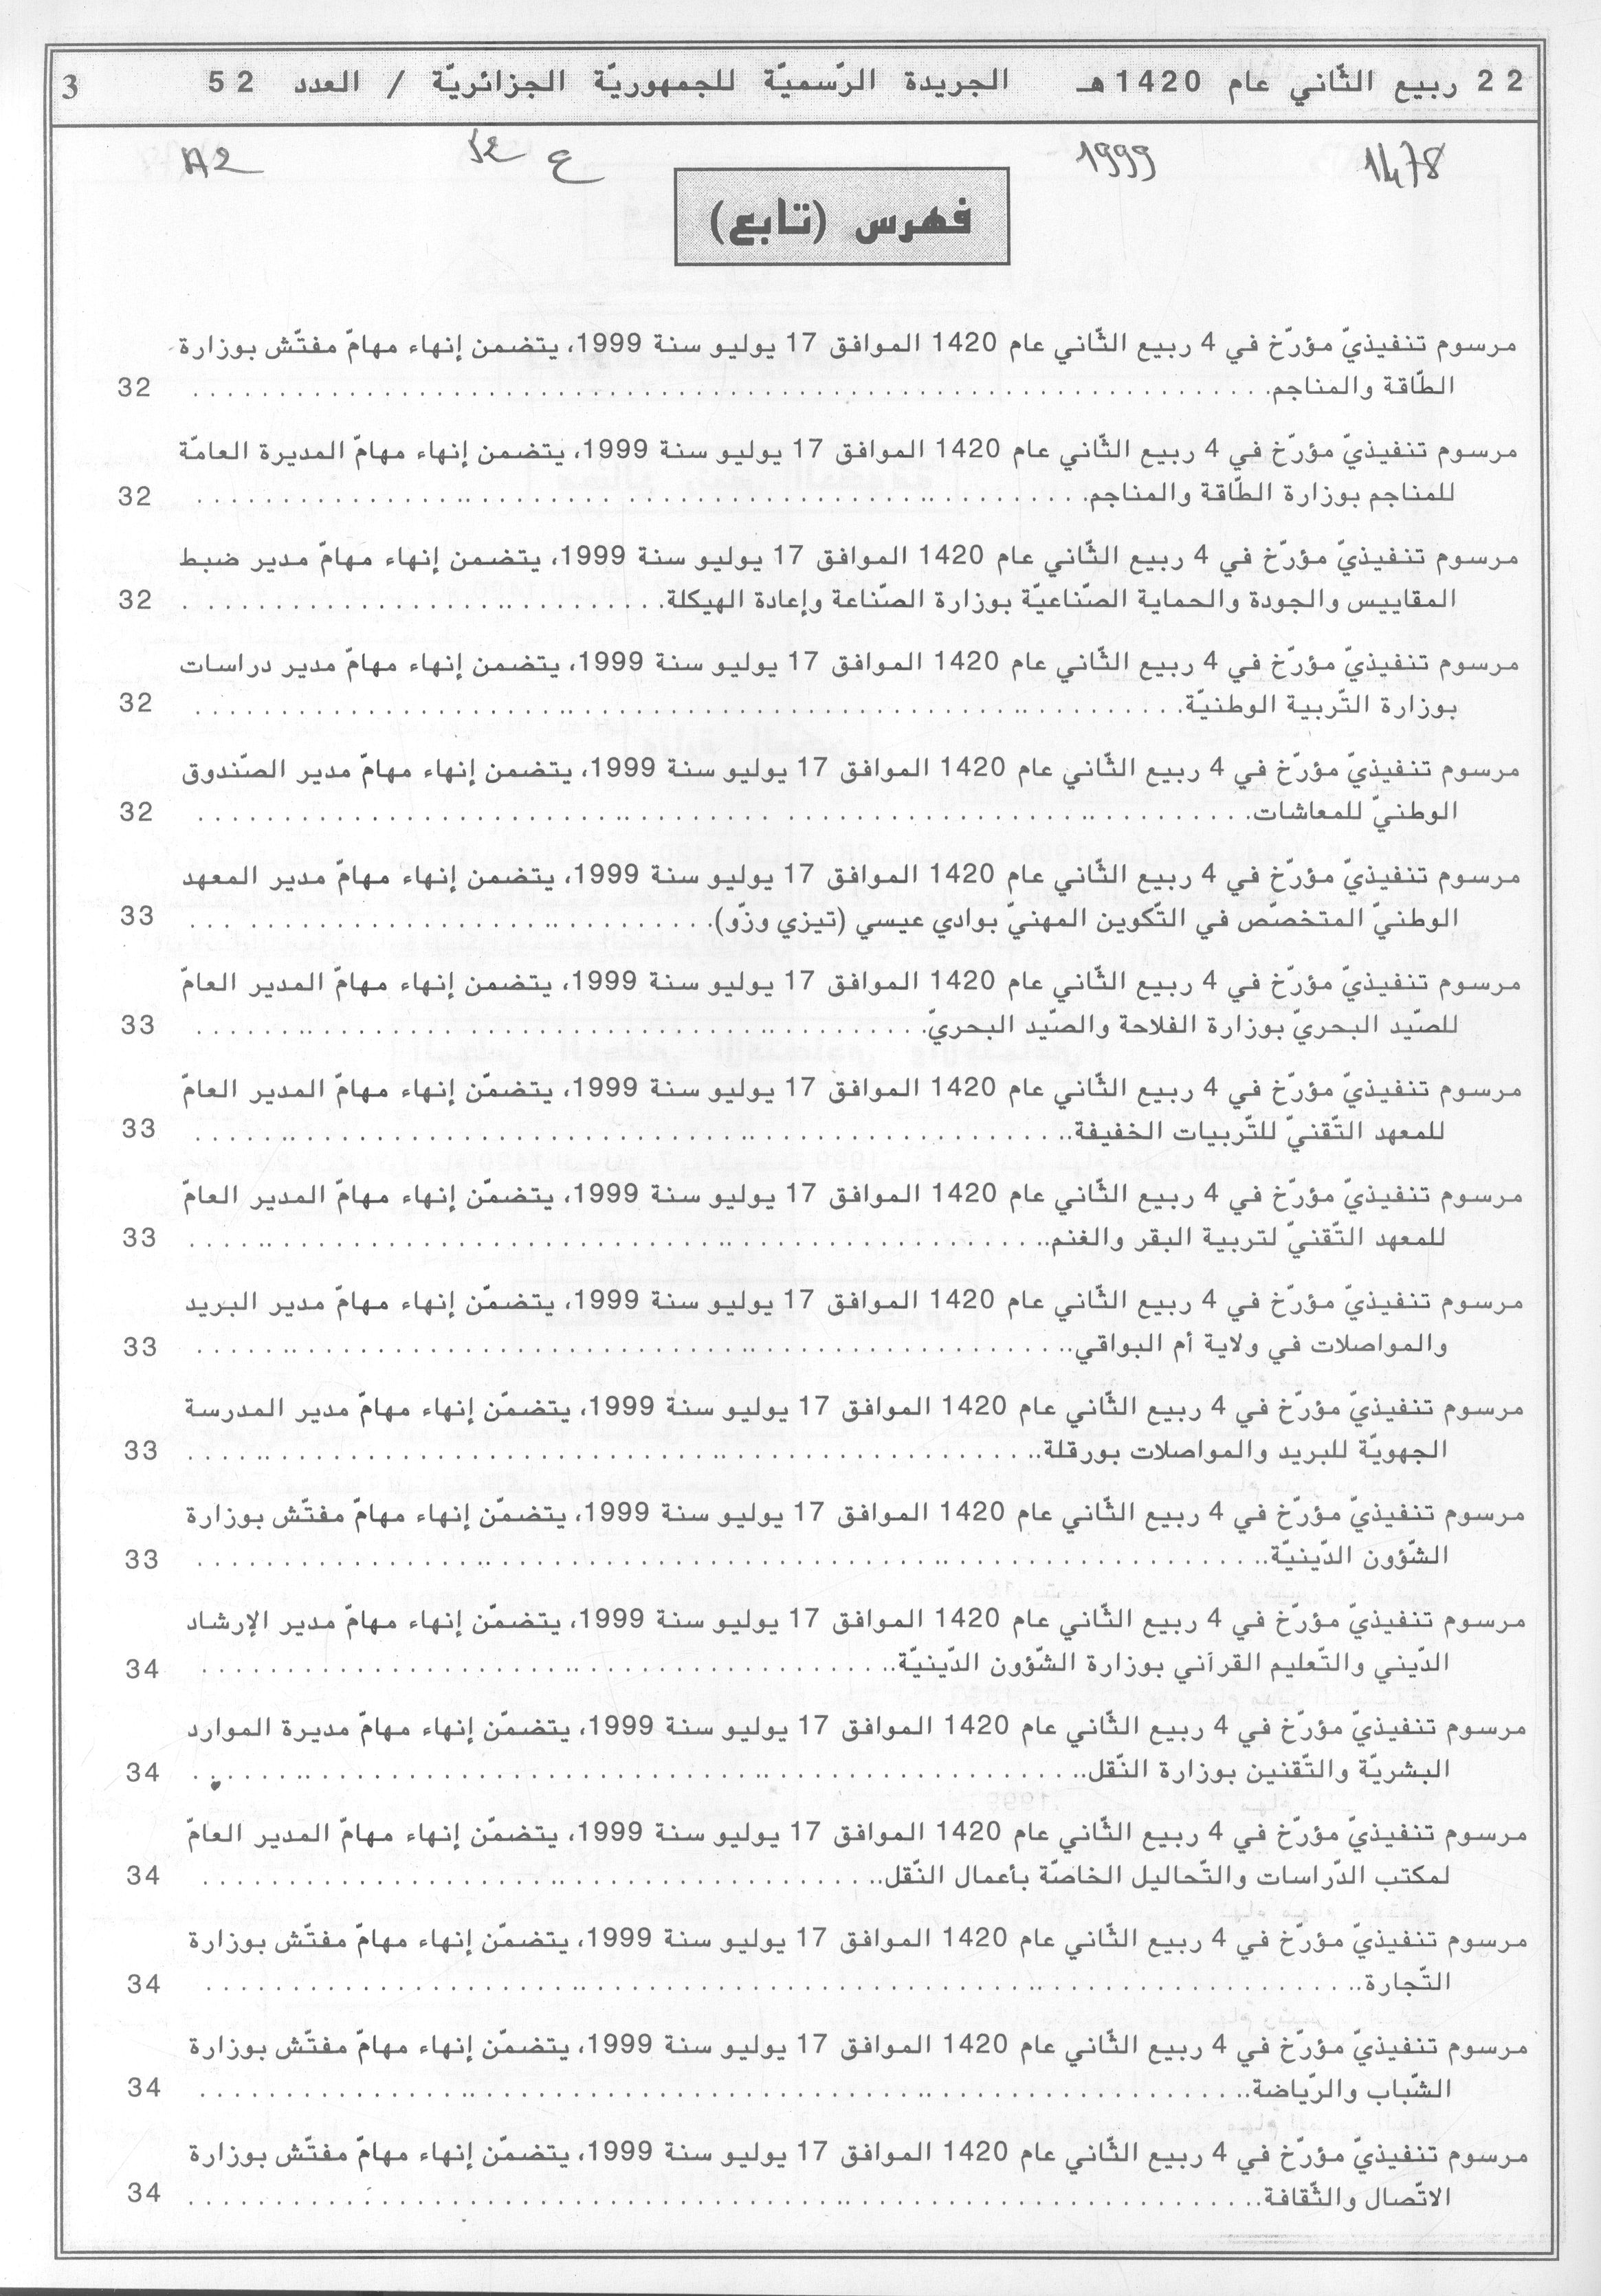 22 ربيع الثّاني عام 1420 هـ الجريدة الرّسميّة للجمهوريّة الجزائريّة / العدد 52 3
1478 1999 ع 52 A2
فهرس (تابع)
مرسوم تنفيذيّ مؤرّخ في 4 ربيع الثّاني عام 1420 الموافق 17 يوليو سنة 1999، يتضمن إنهاء مهامّ مفتّش بوزارة
الطّاقة والمناجم. 32
مرسوم تنفيذيّ مؤرّخ في 4 ربيع الثّاني عام 1420 الموافق 17 يوليو سنة 1999، يتضمن إنهاء مهامّ المديرة العامّة
للمناجم بوزارة الطّاقة والمناجم. 32
مرسوم تنفيذيّ مؤرّخ في 4 ربيع الثّاني عام 1420 الموافق 17 يوليو سنة 1999، يتضمن إنهاء مهامّ مدير ضبط
المقاييس والجودة والحماية الصّناعيّة بوزارة الصّناعة وإعادة الهيكلة. 32
مرسوم تنفيذيّ مؤرّخ في 4 ربيع الثّاني عام 1420 الموافق 17 يوليو سنة 1999، يتضمن إنهاء مهامّ مدير دراسات
بوزارة التّربية الوطنيّة. 32
مرسوم تنفيذيّ مؤرّخ في 4 ربيع الثّاني عام 1420 الموافق 17 يوليو سنة 1999، يتضمن إنهاء مهامّ مدير الصّندوق
الوطنيّ للمعاشات. 32
مرسوم تنفيذيّ مؤرّخ في 4 ربيع الثّاني عام 1420 الموافق 17 يوليو سنة 1999، يتضمن إنهاء مهامّ مدير المعهد
الوطنيّ المتخصّص في التّكوين المهنيّ بوادي عيسي (تيزي وزّو). 33
مرسوم تنفيذيّ مؤرّخ في 4 ربيع الثّاني عام 1420 الموافق 17 يوليو سنة 1999، يتضمن إنهاء مهامّ المدير العامّ
للصّيد البحريّ بوزارة الفلاحة والصّيد البحريّ. 33
مرسوم تنفيذيّ مؤرّخ في 4 ربيع الثّاني عام 1420 الموافق 17 يوليو سنة 1999، يتضمّن إنهاء مهامّ المدير العامّ
للمعهد التّقنيّ للتّربيات الخفيفة. 33
مرسوم تنفيذيّ مؤرّخ في 4 ربيع الثّاني عام 1420 الموافق 17 يوليو سنة 1999، يتضمّن إنهاء مهامّ المدير العامّ
للمعهد التّقنيّ لتربية البقر والغنم. 33
مرسوم تنفيذيّ مؤرّخ في 4 ربيع الثّاني عام 1420 الموافق 17 يوليو سنة 1999، يتضمّن إنهاء مهامّ مدير البريد
والمواصلات في ولاية أم البواقي. 33
مرسوم تنفيذيّ مؤرّخ في 4 ربيع الثّاني عام 1420 الموافق 17 يوليو سنة 1999، يتضمّن إنهاء مهامّ مدير المدرسة
الجهويّة للبريد والمواصلات بورقلة. 33
مرسوم تنفيذيّ مؤرّخ في 4 ربيع الثّاني عام 1420 الموافق 17 يوليو سنة 1999، يتضمّن إنهاء مهامّ مفتّش بوزارة
الشّؤون الدّينيّة. 33
مرسوم تنفيذيّ مؤرّخ في 4 ربيع الثّاني عام 1420 الموافق 17 يوليو سنة 1999، يتضمّن إنهاء مهامّ مدير الإرشاد
الدّيني والتّعليم القرآني بوزارة الشّؤون الدّينيّة. 34
مرسوم تنفيذيّ مؤرّخ في 4 ربيع الثّاني عام 1420 الموافق 17 يوليو سنة 1999، يتضمّن إنهاء مهامّ مديرة الموارد
البشريّة والتّقنين بوزارة النّقل. 34
مرسوم تنفيذيّ مؤرّخ في 4 ربيع الثّاني عام 1420 الموافق 17 يوليو سنة 1999، يتضمّن إنهاء مهامّ المدير العامّ
لمكتب الدّراسات والتّحاليل الخاصّة بأعمال النّقل. 34
مرسوم تنفيذيّ مؤرّخ في 4 ربيع الثّاني عام 1420 الموافق 17 يوليو سنة 1999، يتضمّن إنهاء مهامّ مفتّش بوزارة
التّجارة. 34
مرسوم تنفيذيّ مؤرّخ في 4 ربيع الثّاني عام 1420 الموافق 17 يوليو سنة 1999، يتضمّن إنهاء مهامّ مفتّش بوزارة
الشّباب والرّياضة. 34
مرسوم تنفيذيّ مؤرّخ في 4 ربيع الثّاني عام 1420 الموافق 17 يوليو سنة 1999، يتضمّن إنهاء مهامّ مفتّش بوزارة
الاتّصال والثّقافة. 34